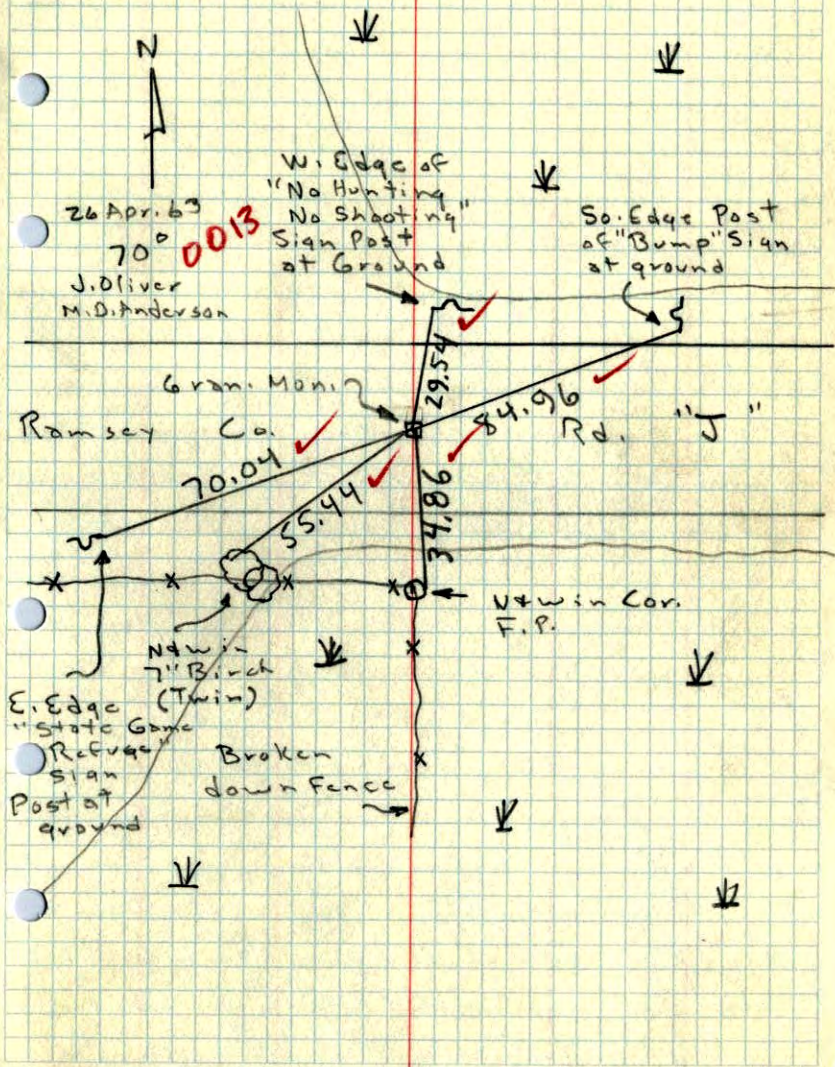 N
26 Apr. 63
70° 0013
J. Oliver
M.D. Anderson
W. Edge of
"No Hunting
No Shooting"
Sign Post
at Ground
So. Edge Post
of "Bump" Sign
at ground
29.54
84.96
Gran. Mon.
Ramsey Co. Rd. "J"
70.04
55.44
34.86
N & W in Cor.
F.P.
N & W in
7" Birch
(Twin)
E. Edge
"State Game
Refuge"
Sign
Post at
ground
Broken
down Fence